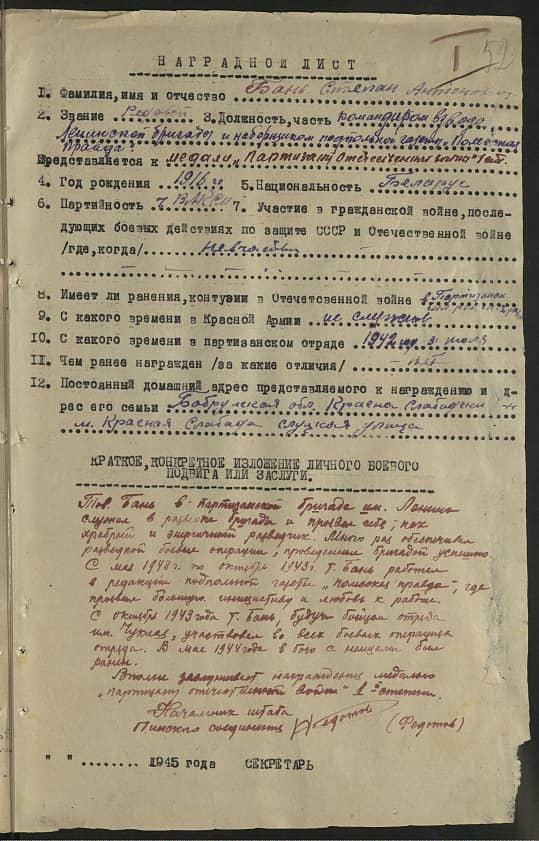 I 52
НАГРАДНОЙ ЛИСТ
1. Фамилия, имя и отчество Бань Степан Антонович
2. Звание Рядовой 3. Должность, часть командиром взвода
Ленинской бригады и наборщиком подпольной газеты „Полесская
Правда".
Представляется к медали „Партизану Отечественной войны" 1 ст.
4. Год рождения 1916 г. 5. Национальность Беларус
6. Партийность 7. Участие в гражданской войне, после-
дующих боевых действиях по защите СССР и Отечественной войне
/где, когда/
8. Имеет ли ранения, контузии в Отечетсвенной войне в Партизанск
9. С какого времени в Красной Армии не служив
10. С какого времени в партизанском отряде 1942 г. июля
11. Чем ранее награжден /за какие отличия/ нет
12. Постоянный домашний адрес представляемого к награждению и д-
рес его семьи Бобруйская обл. Красно Слабадский р-н
м. Красная Слабада слуцкая улица
КРАТКОЕ, КОНКРЕТНОЕ ИЗЛОЖЕНИЕ ЛИЧНОГО БОЕВОГО
ПОДВИГА ИЛИ ЗАСЛУГИ.
Тов. Бань в партизанской бригаде им. Ленина
служил в разведке бригады и проявил себя, как
храбрый и энергичный разведчик. Много раз обеспечивал
разведкой боевые операции, проведенные бригадой успешно.
С мая 1943 г. по октябрь 1943 г. т. Бань работал
в редакции подпольной газеты „Полесская правда", где
проявил большую инициативу и любовь к работе.
С октября 1943 года т. Бань, будучи бойцом отряда
им. Чуклая, участвовал во всех боевых операциях
отряда. В мае 1944 года в бою с немцами был
ранен.
Вполне заслуживает награждения медалью
„партизану отечественной войны" 1й степени.
Начальник штаба
Пинского соединения Федотов (Федотов)
" " ........ 1945 года СЕКРЕТАРЬ